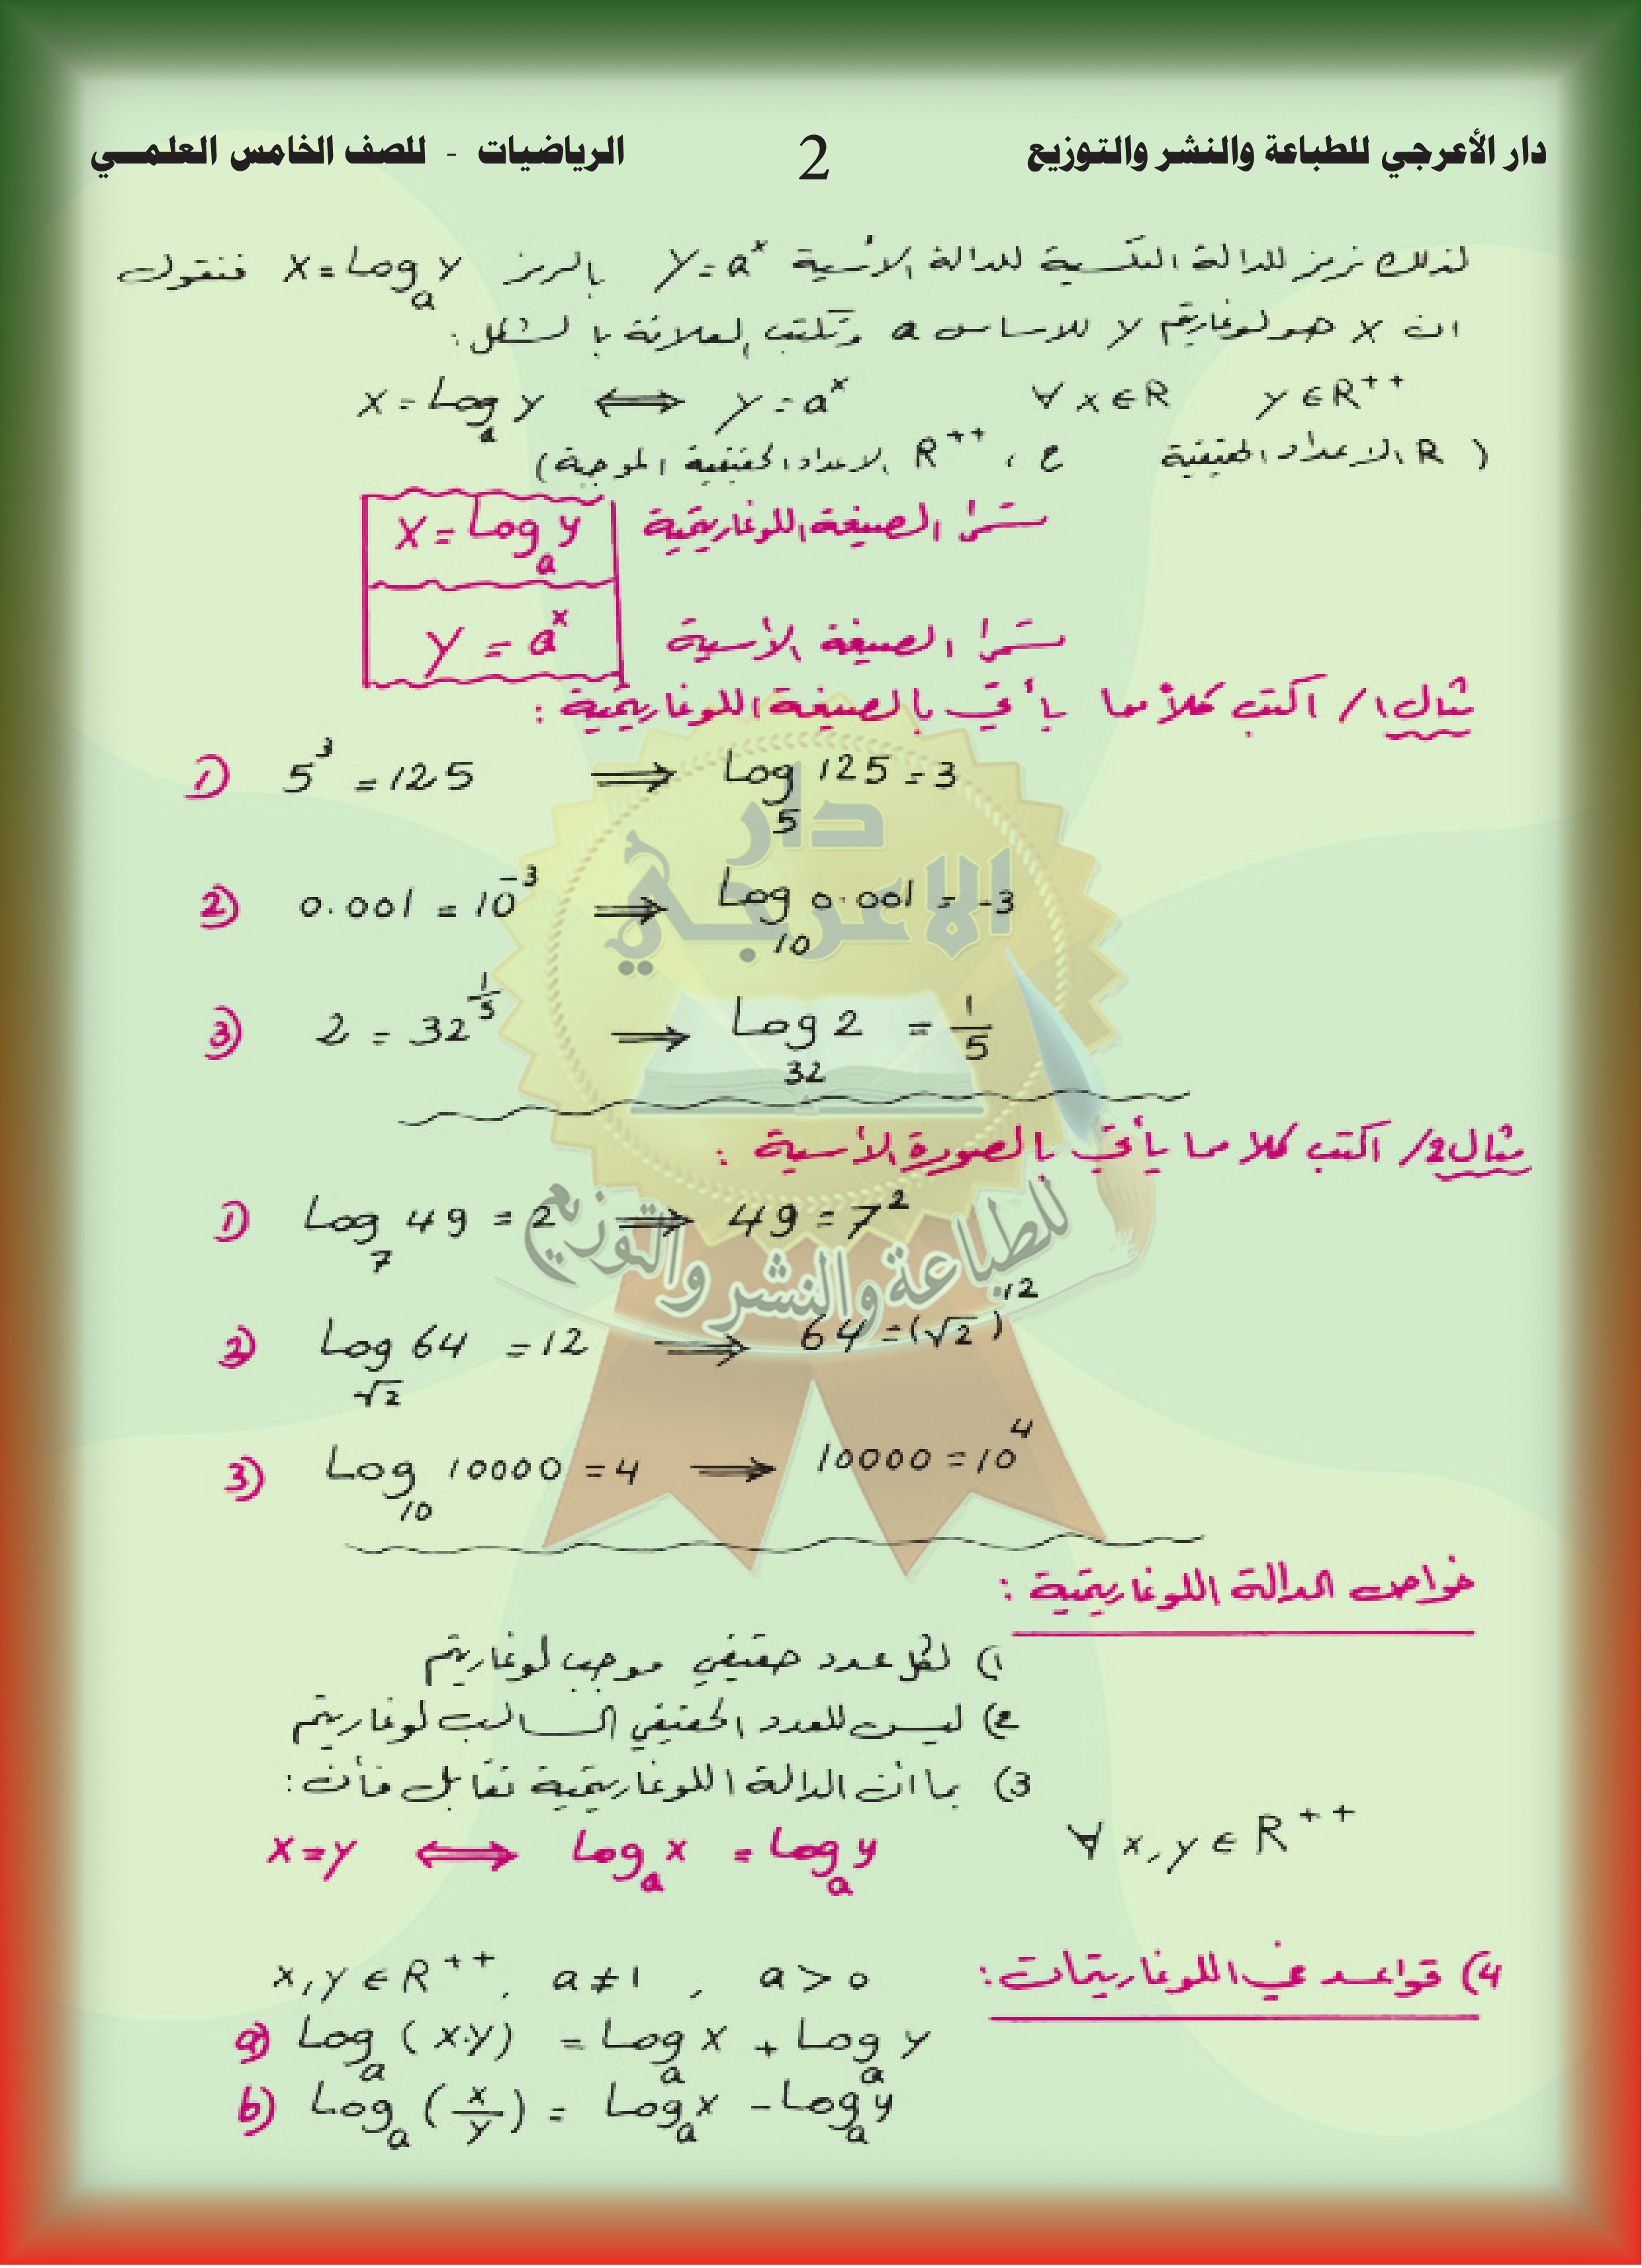 دار الأعرجي للطباعة والنشر والتوزيع 2 الرياضيات - للصف الخامس العلمي
لذلك نرمز للدالة العكسية للدالة الأسية y = a^x بالرمز x = Log_a y فنقول
ان x هو لوغاريتم y للاساس a وتكتب العلاقة بالشكل:
x = Log_a y ⟺ y = a^x ∀ x ∈ R y ∈ R^{++}
( R الاعداد الحقيقية ، R^{++} الاعداد الحقيقية الموجبة)
x = Log_a y تسمى الصيغة اللوغاريتمية
y = a^x تسمى الصيغة الأسية
مثال 1/ اكتب كلاً مما يأتي بالصيغة اللوغاريتمية :
1) 5^3 = 125 ⟹ Log_5 125 = 3
2) 0.001 = 10^{-3} ⟹ Log_10 0.001 = -3
3) 2 = 32^{1/5} ⟹ Log_32 2 = 1/5
مثال 2/ اكتب كلا مما يأتي بالصورة الأسية :
1) Log_7 49 = 2 ⟹ 49 = 7^2
2) Log_√2 64 = 12 ⟹ 64 = (√2)^12
3) Log_10 10000 = 4 ⟹ 10000 = 10^4
خواص الدالة اللوغاريتمية :
1) لكل عدد حقيقي موجب لوغاريتم
2) ليس للعدد الحقيقي السالب لوغاريتم
3) بما أن الدالة اللوغاريتمية تقابل فأن :
x = y ⟺ Log_a x = Log_a y ∀ x, y ∈ R^{++}
4) قواعد في اللوغاريتمات : x, y ∈ R^{++} , a ≠ 1 , a > 0
a) Log_a (x.y) = Log_a x + Log_a y
b) Log_a (x/y) = Log_a x - Log_a y
دار
الاعرجي
للطباعة والنشر والتوزيع